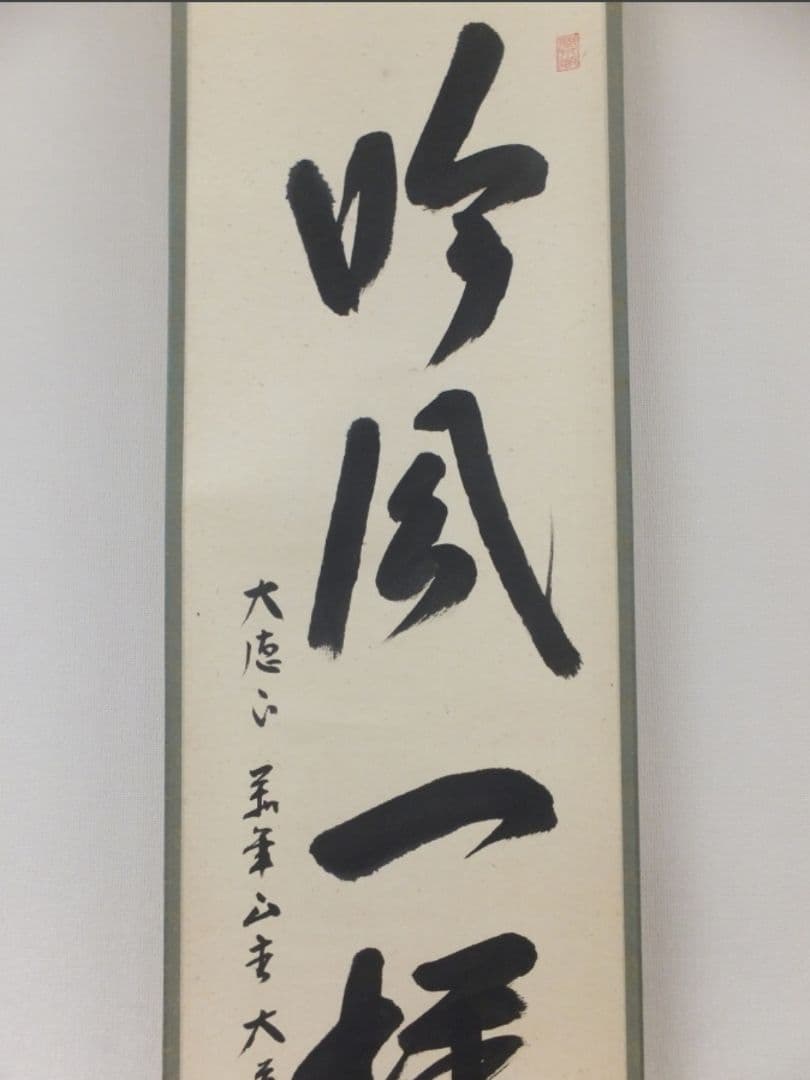 吟風一
大徳下 萬年山主 大